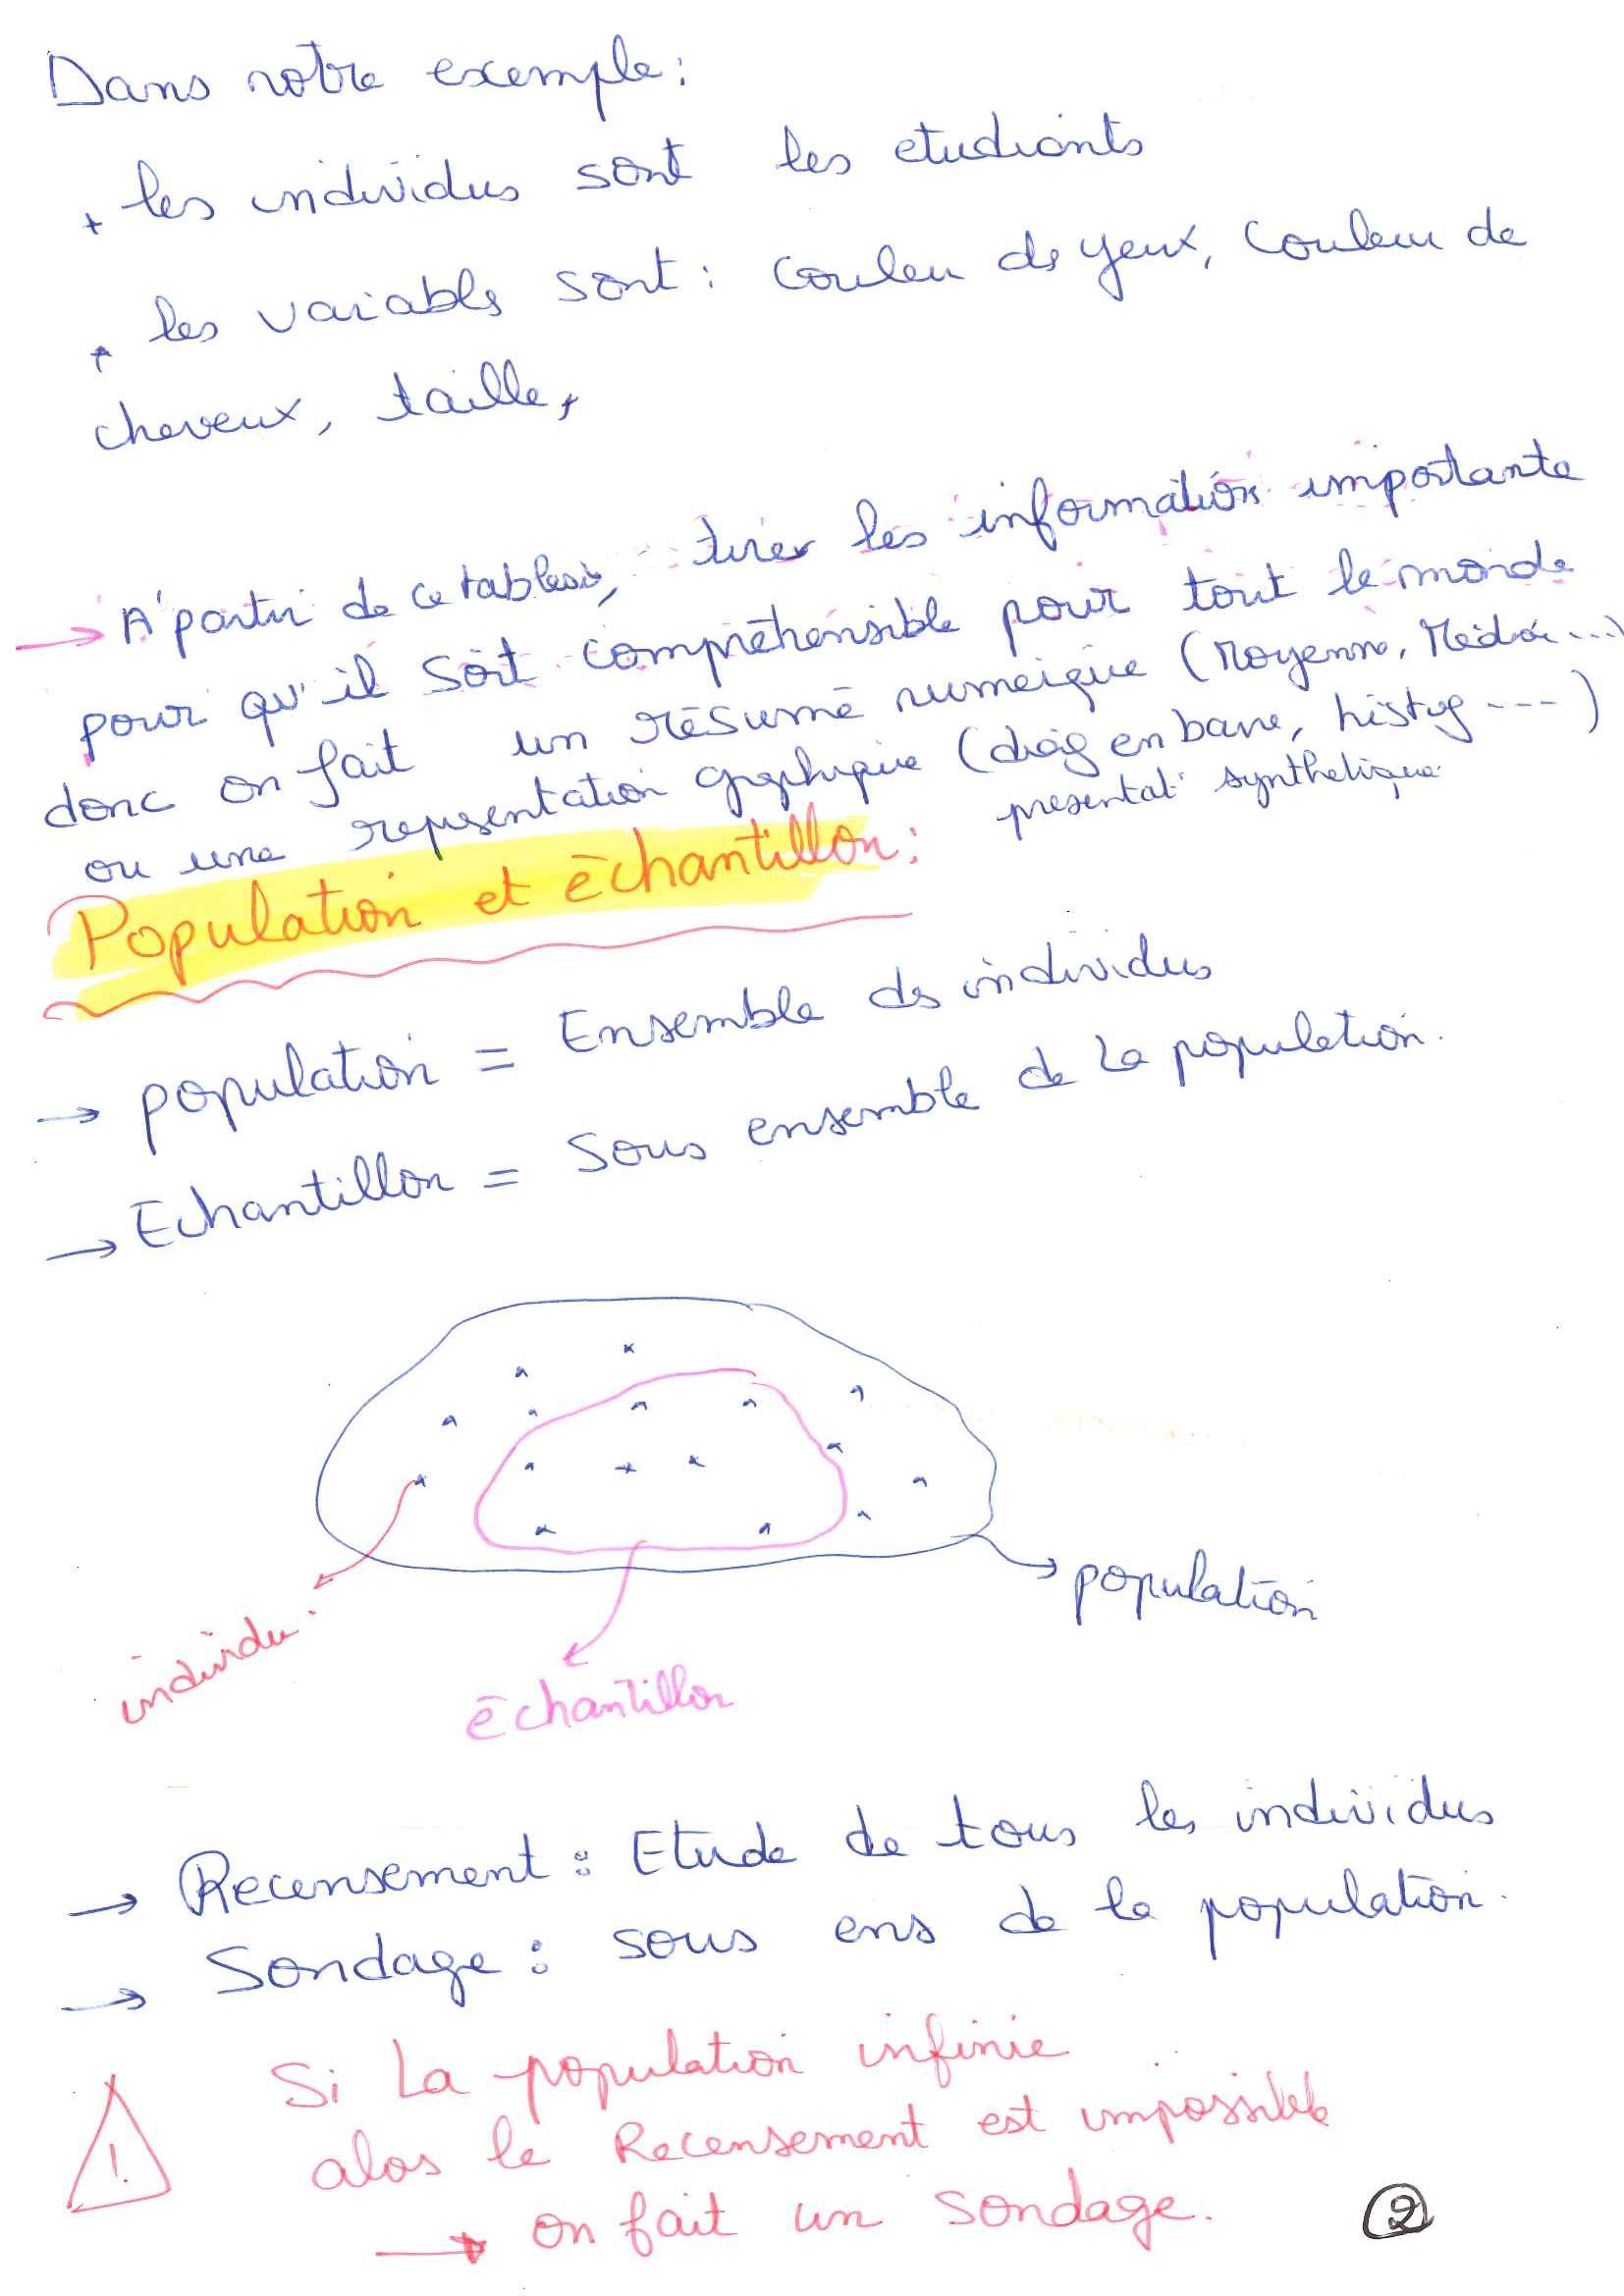 Dans notre exemple :
+ les individus sont les etudiants
+ les variables sont : couleu ds yeux, couleur de
cheveux, taille,
→ A partir de ce tableau, tirer les informations importante
pour qu'il soit compréhensible pour tout le monde
donc on fait un résumé numeique (Moyenne, Média...)
ou une representation graphique (diag en barre, histog ---)
presentat° synthetique
Population et échantillon :
→ population = Ensemble ds individus
→ Echantillon = Sous ensemble de La population.
individu
échantillon
population
→ Recensement : Etude de tous les individus
→ Sondage : sous ens de la population.
! Si La population infinie
alos le Recensement est impossible
→ on fait un sondage.
2